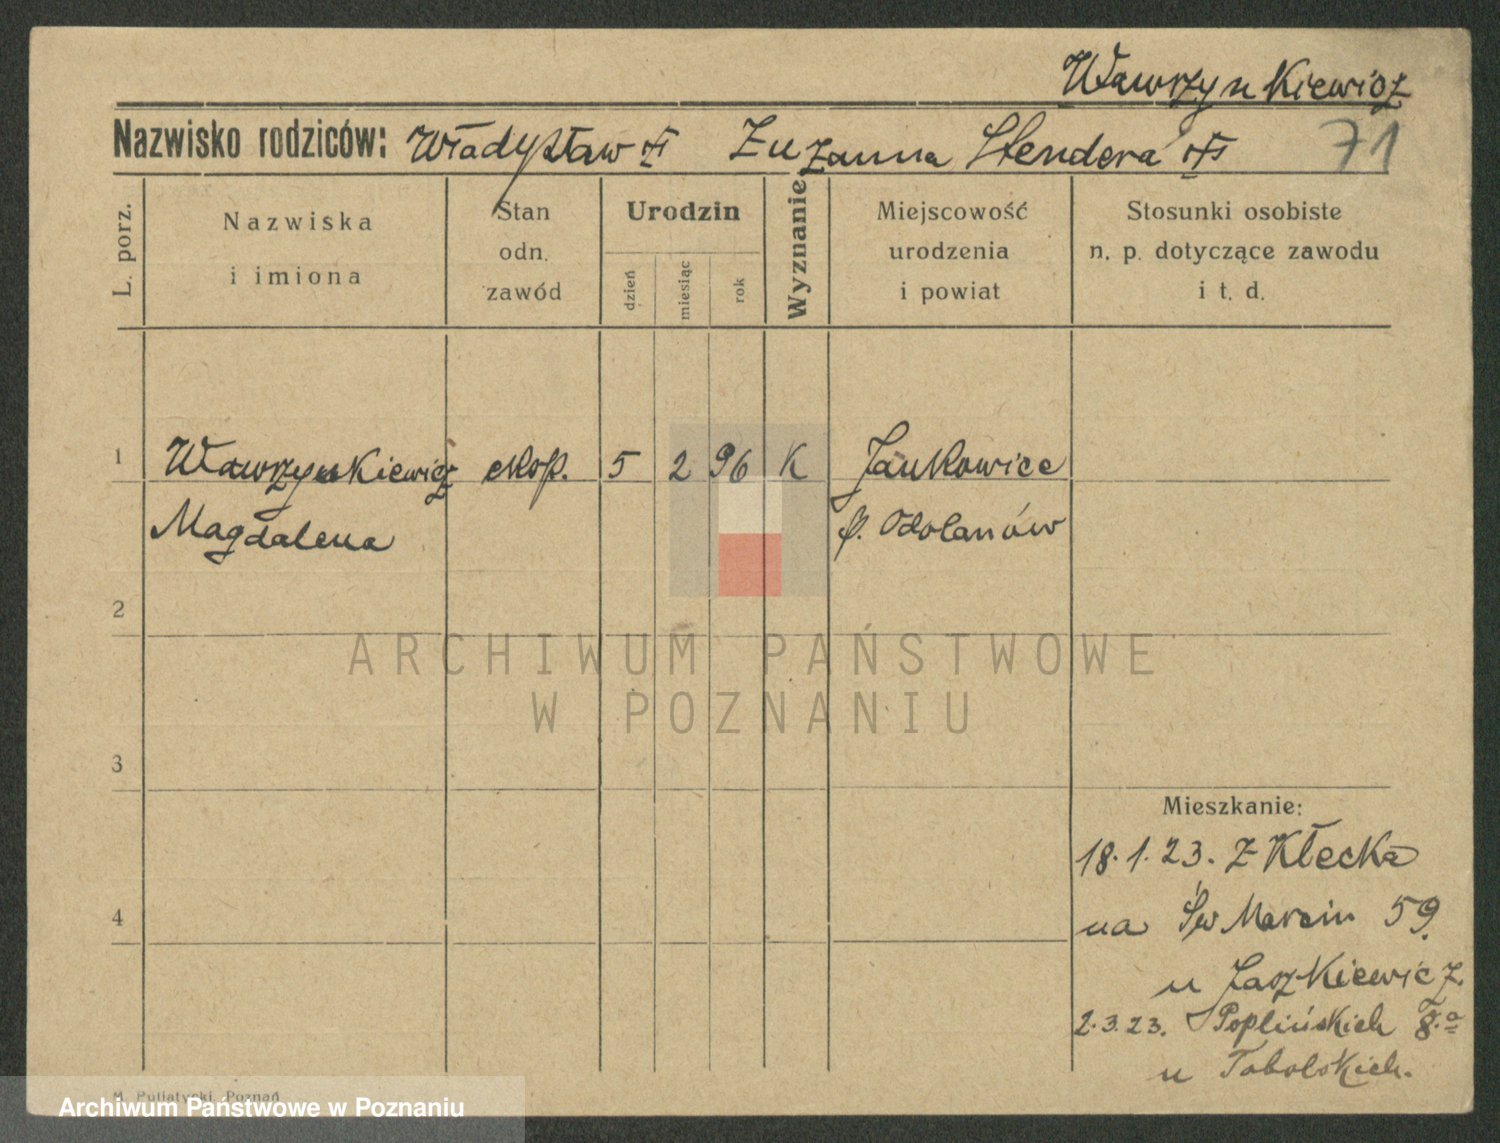 Wawrzynkiewicz
Nazwisko rodziców: Władysław Zuzanna Stendera 71
L. porz.
Nazwiska
i imiona
Stan
odn.
zawód
Urodzin
dzień
miesiąc
rok
Wyznanie
Miejscowość
urodzenia
i powiat
Stosunki osobiste
n. p. dotyczące zawodu
i t. d.
1 Wawrzynkiewicz eksp. 5 2 96 K Jankowice
Magdalena p. Odolanów
2
ARCHIWUM PAŃSTWOWE
W POZNANIU
3
Mieszkanie:
18.1.23. z Kłecka
4
na Św Marcin 59.
u Jaszkiewicz
2.3.23. Poplińskich 8.a
u Tobolskich.
M. Putiatycki, Poznań
Archiwum Państwowe w Poznaniu